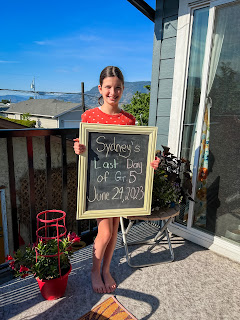 Sydney's
Last Day
of Gr.5
June 29, 2023